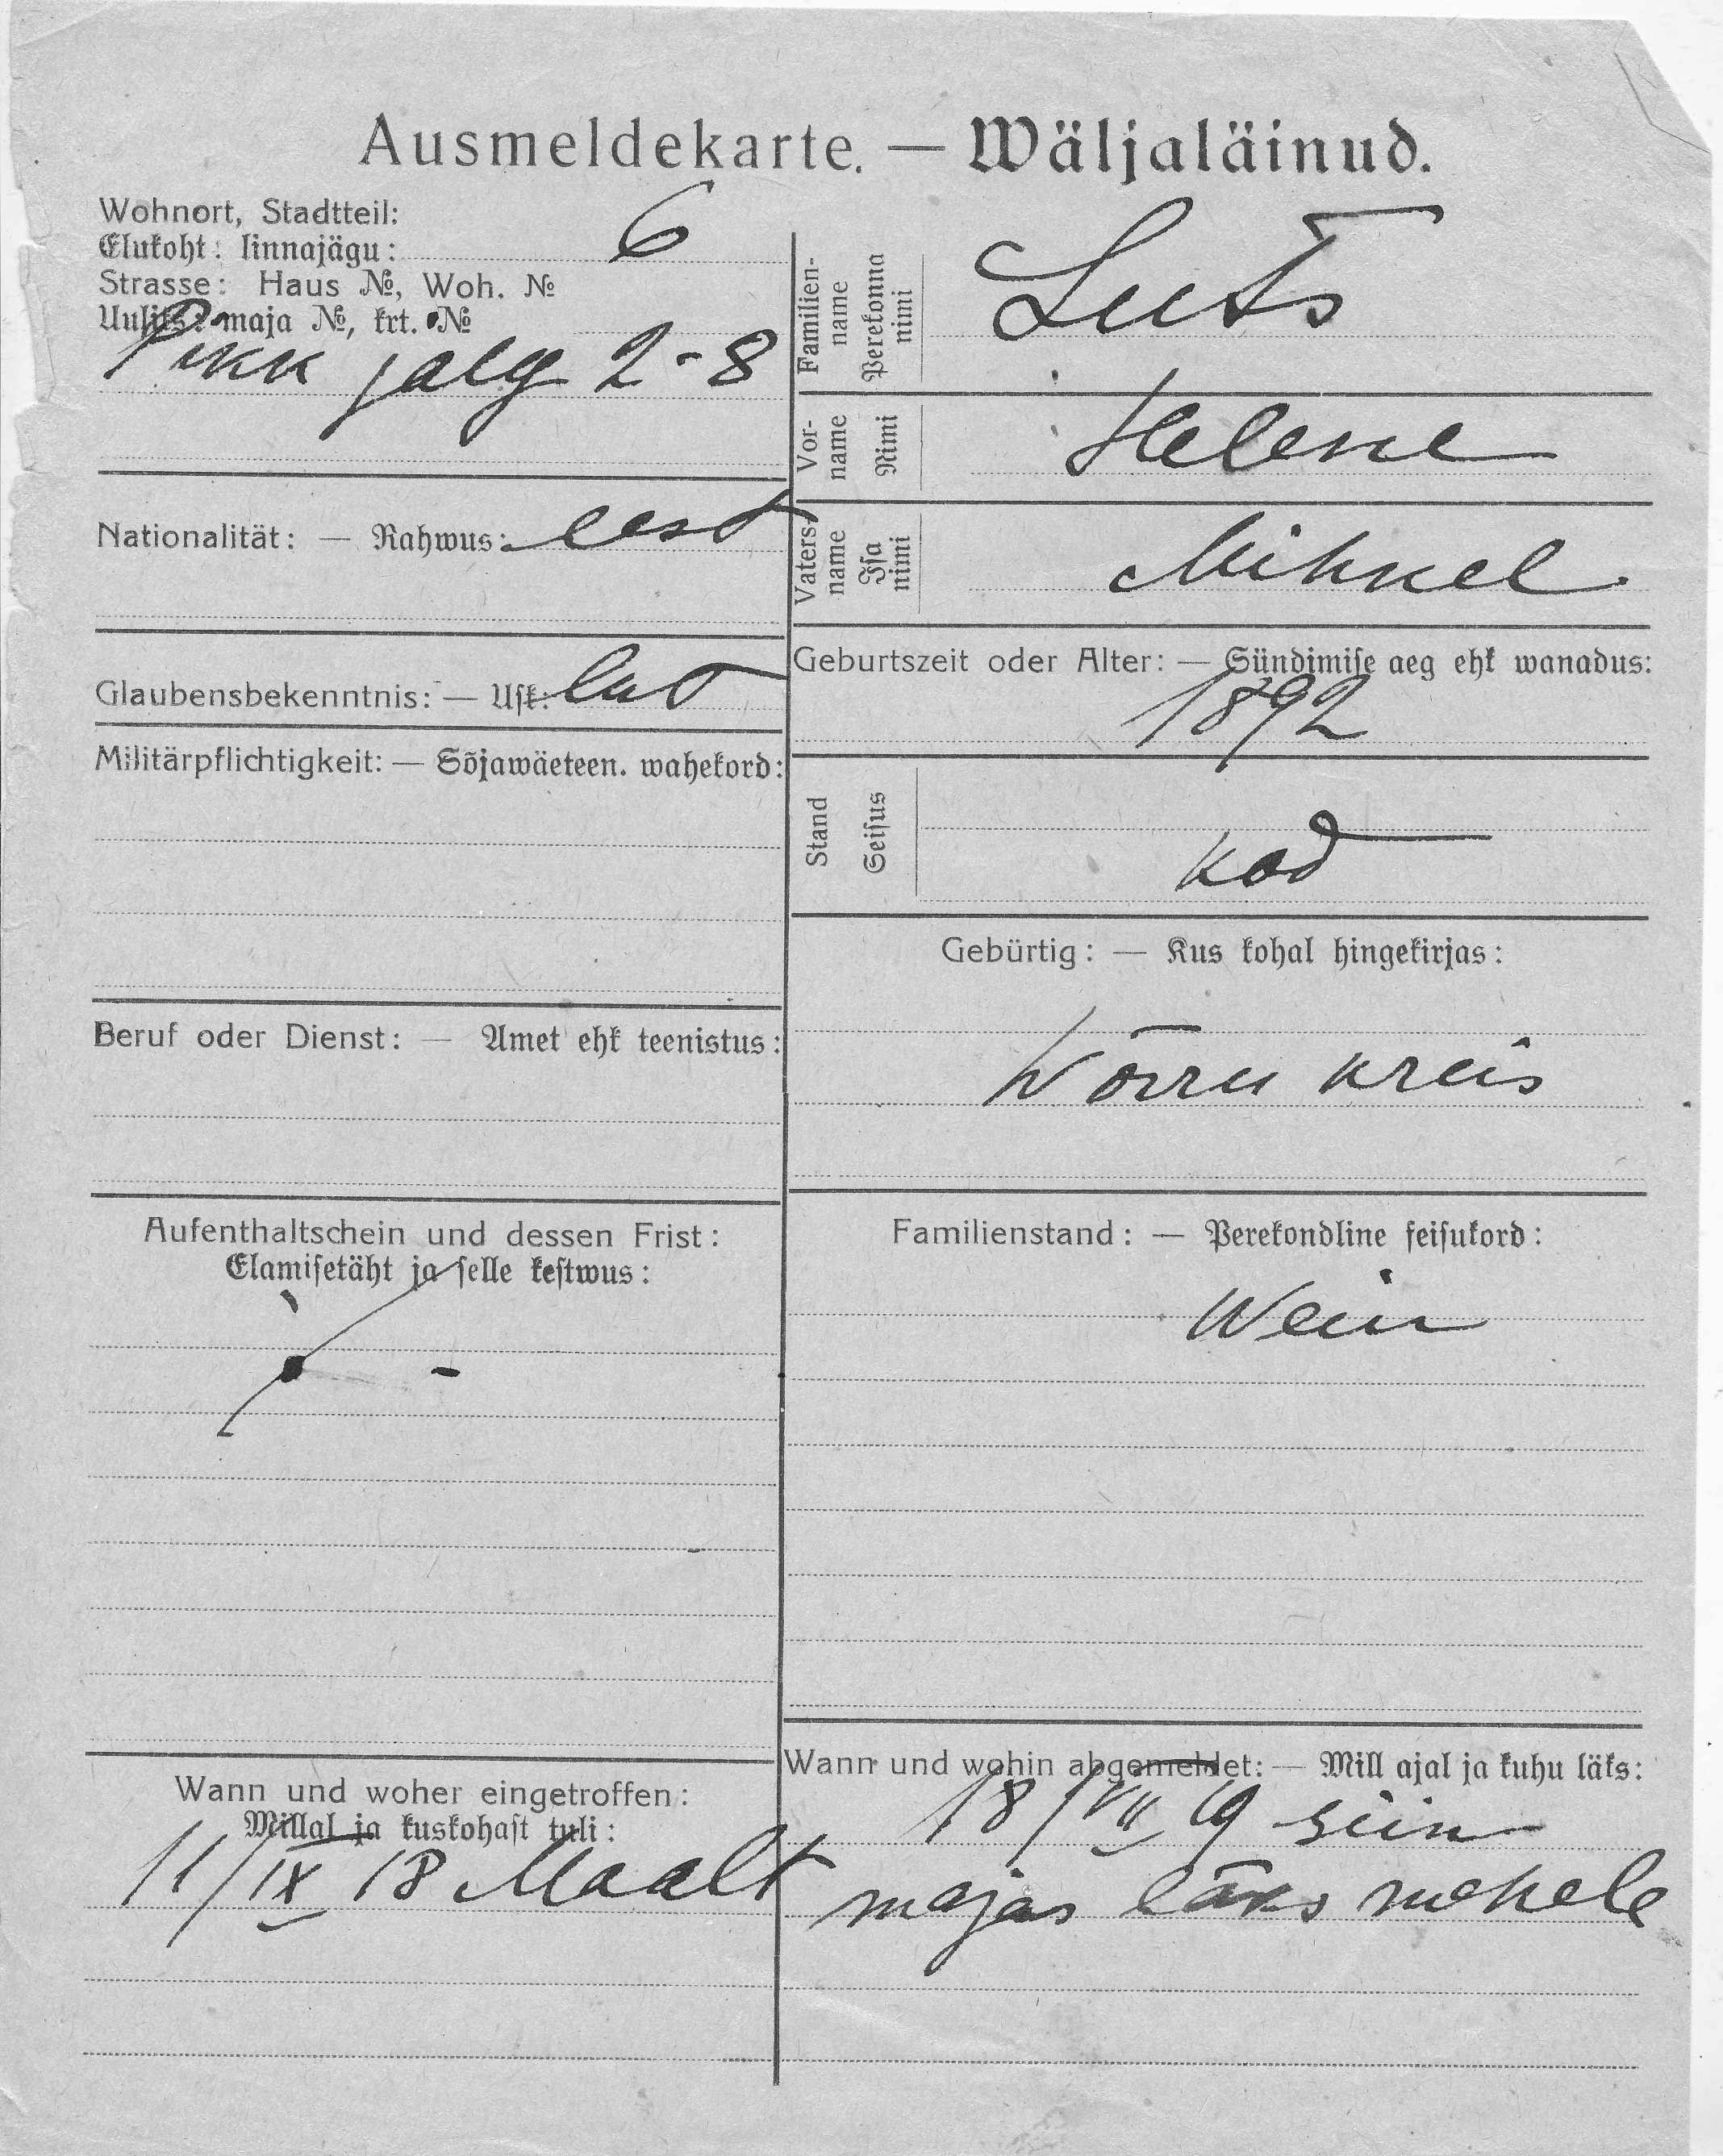 Ausmeldekarte. — Wäljaläinud.
Wohnort, Stadtteil:
Elukoht: linnajägu: 6
Strasse: Haus №, Woh. №
Uulits: maja №, krt. №
Pikk jalg 2-8
Nationalität: — Rahwus: eest
Glaubensbekenntnis: — Usk: lut
Militärpflichtigkeit: — Sõjawäeteen. wahekord:
Beruf oder Dienst: — Amet ehk teenistus:
Aufenthaltschein und dessen Frist:
Elamisetäht ja selle kestwus:
Wann und woher eingetroffen:
Millal ja kuskohast tuli:
11/IX 18 Maalt
Familien-
name
Perekonna
nimi
Luts
Vor-
name
Nimi
Helene
Vaters-
name
Isa
nimi
Mihkel
Geburtszeit oder Alter: — Sündimise aeg ehk wanadus:
1892
Stand
Seisus
kod
Gebürtig: — Kus kohal hingekirjas:
Wõrru kreis
Familienstand: — Perekondline seisukord:
Wann und wohin abgemeldet: — Mill ajal ja kuhu läks:
18/VII 19 siin
majas läks mehele